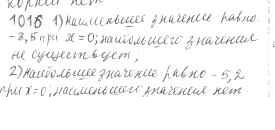 корней нет
1016 1) наименьшее значение равно
-3,5 при x=0; наибольшего значения
не существует,
2) наибольшее значение равно -5,2
при x=0, наименьшего значения нет